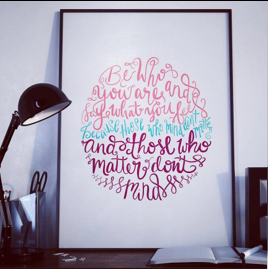 Be Who
You are and
say what you feel
because those who mind don't matter
and those who
matter don't
mind